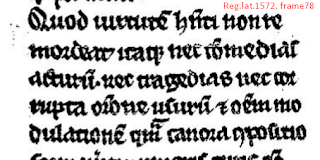 Reg.lat.1572, frame78
Quod uirtutē hñti non te
mordeat itaq; nec cōmedias
acturū. nec tragedias nec cor
rupta orōne usurū & oēm mo
dulationē qm̄ canora ꝯpositio